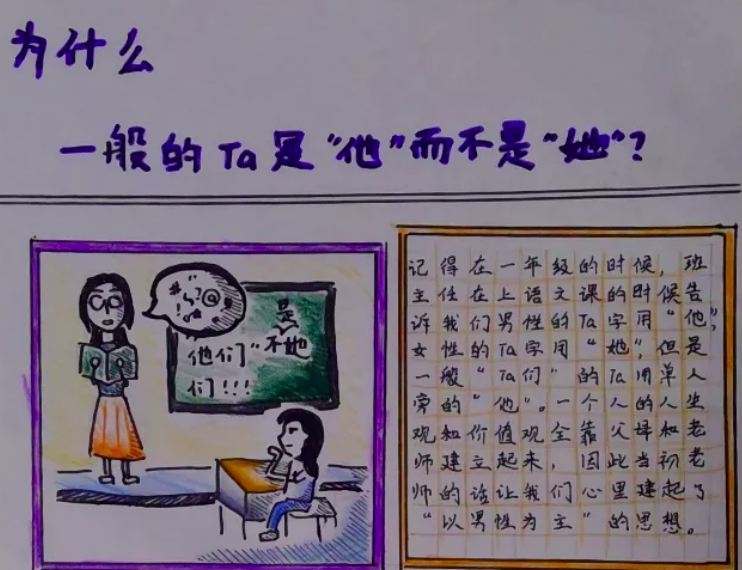 为什么
一般的Ta是“他”而不是“她”?
是
他们“不她
们!!!
记得在一年级的时候,班
主任在上语文课的时候告
诉我们男性的Ta字用“他”,
女性的Ta字用“她”,但是
一般“Ta们”的Ta用单人
旁的“他”。一个人的人生
观和价值观全靠父母和老
师建立起来,因此当初老
师的话让我们心里建起了
“以男性为主”的思想。